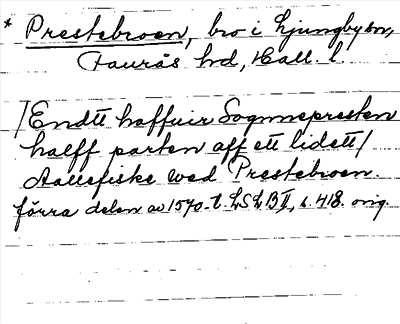 * Prestebroen, bro i Ljungby sn,
Faurås hd, Hall. l.
/Endtt haffuir Sognnepresten
halff parten aff ett lidett/
Aallefiske wed Prestebroen.
förra delen av 1570-t. LSLB II, s. 418. orig.